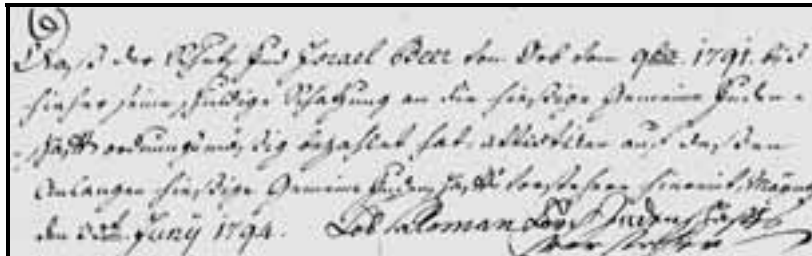 (6)
Daß der Schutz Jud Israel Beer von Orb vom 9br. 1791. bis
hieher seine schuldige Schatzung an die hiesige Gemeine Juden=
=schafft ordnungsmäsig bezahlet hat, attestiren auf dessen
Anlangen hiesige Gemeine Judenschaffts Vorstehere hiermit,
den Junÿ 1794. Löb Salomon Löw Judenschaffts
vorsteher